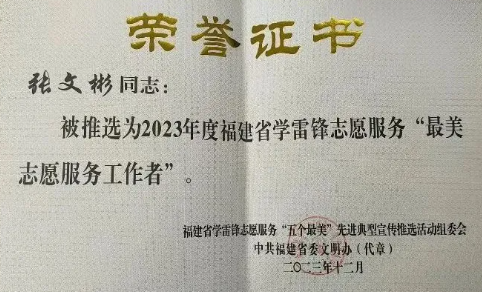 荣誉证书
张文彬同志：
被推选为2023年度福建省学雷锋志愿服务“最美
志愿服务工作者”。
福建省学雷锋志愿服务“五个最美”先进典型宣传推选活动组委会
中共福建省委文明办（代章）
二〇二三年十二月